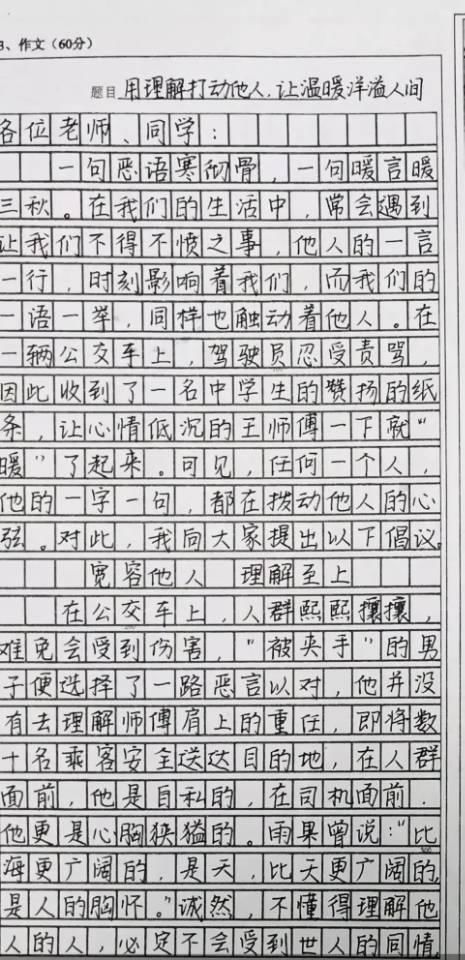 3、作文(60分)
题目 用理解打动他人,让温暖洋溢人间
各位老师、同学:
一句恶语寒彻骨,一句暖言暖
三秋。在我们的生活中,常会遇到
让我们不得不愤之事,他人的一言
一行,时刻影响着我们,而我们的
一语一举,同样也触动着他人。在
一辆公交车上,驾驶员忍受责骂,
因此收到了一名中学生的赞扬的纸
条,让心情低沉的王师傅一下就“
暖”了起来。可见,任何一个人,
他的一字一句,都在拨动他人的心
弦。对此,我向大家提出以下倡议。
宽容他人 理解至上
在公交车上,人群熙熙攘攘,
难免会受到伤害,“被夹手”的男
子便选择了一路恶言以对,他并没
有去理解师傅肩上的重任,即将数
十名乘客安全送达目的地,在人群
面前,他是自私的,在司机面前.
他更是心胸狭猛的。雨果曾说:“比
海更广阔的,是天,比天更广阔的,
是人的胸怀。”诚然,不懂得理解他
人的人,必定不会受到世人的同情,